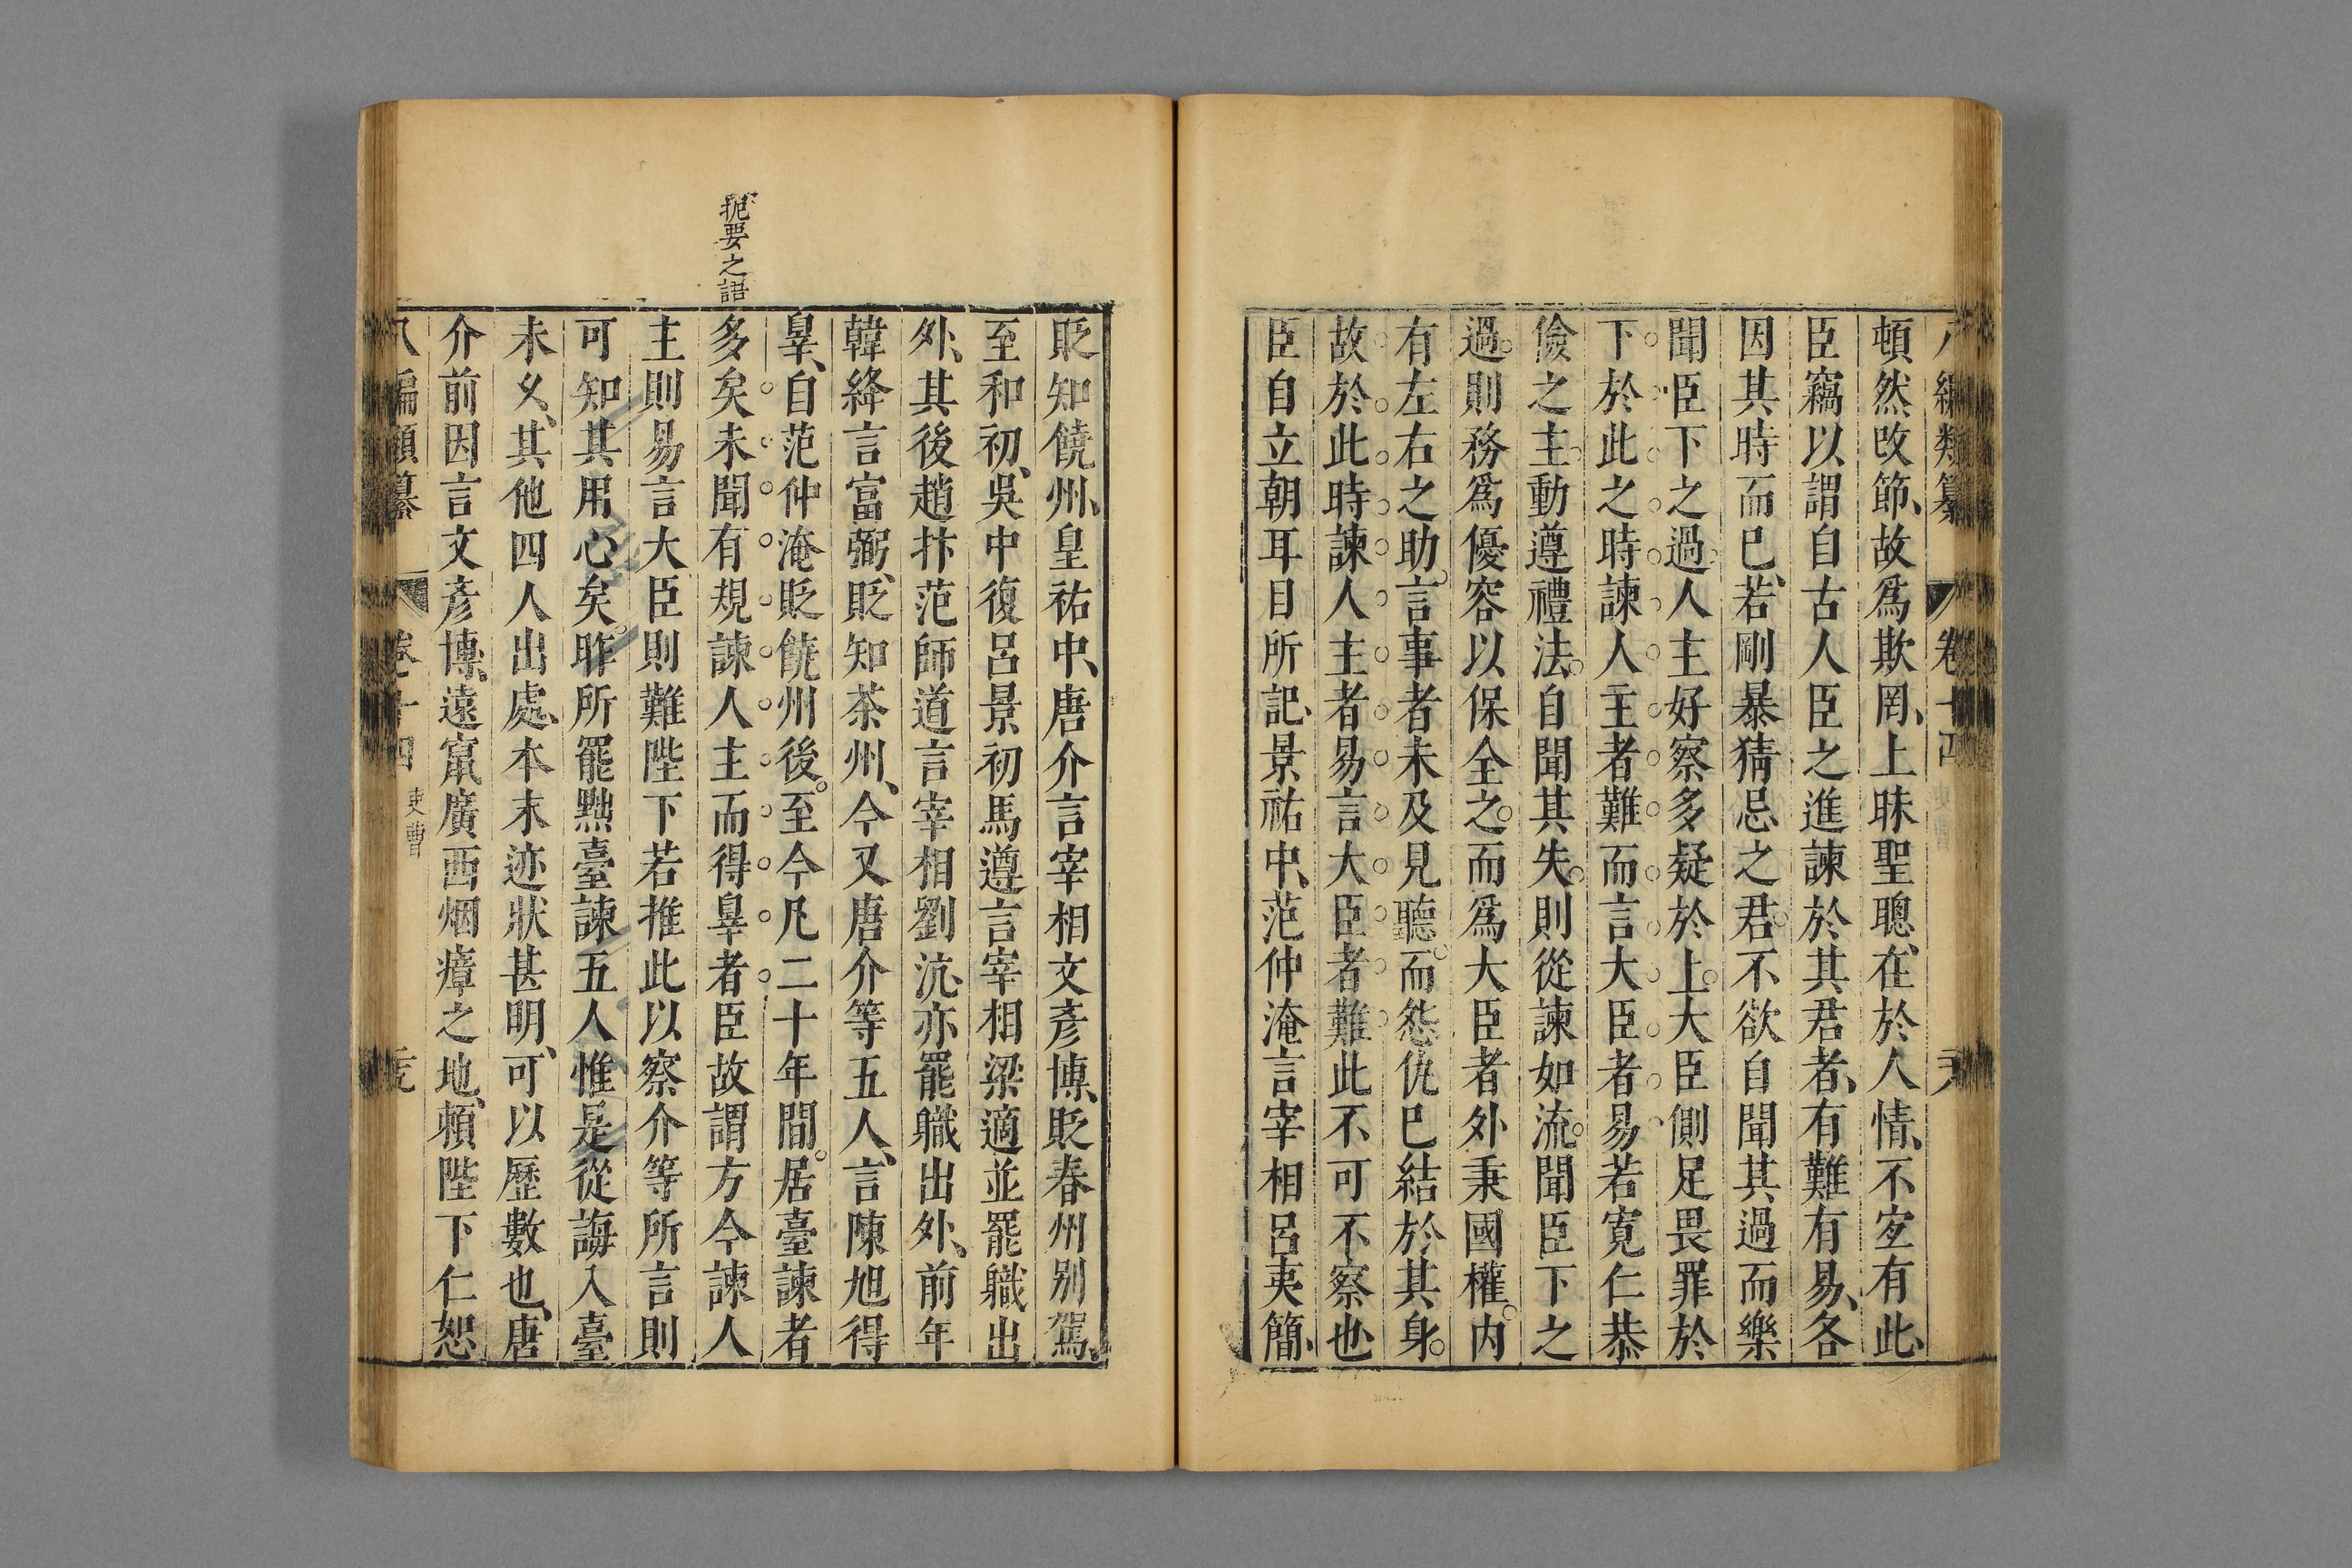 八編類纂 卷十四
頓然改節、故爲欺罔、上昧聖聰、在於人情、不宐有此、
臣竊以謂自古人臣之進諫於其君者、有難有易、各
因其時而已、若剛暴猜忌之君。不欲自聞其過而樂
聞臣下之過。人主好察多疑於上。大臣側足畏罪於
下。於此之時諫人主者難而言大臣者易若寛仁恭
儉之主。動遵禮法。自聞其失。則從諫如流。聞臣下之
過。則務爲優容以保全之。而爲大臣者外秉國權。内
有左右之助。言事者未及見聽。而怨仇已結於其身。
故於此時諫人主者易言大臣者難此不可不察也、
臣自立朝耳目所記、景祐中、范仲淹言宰相呂夷簡、
貶知饒州、皇祐中、唐介言宰相文彥博、貶春州別駕、
至和初、吳中復呂景初馬遵言宰相梁適並罷職出
外、其後趙抃范師道言宰相劉沆、亦罷職出外、前年
韓絳言富弼、貶知茶州、今又唐介等五人、言陳旭得
辠、自范仲淹貶饒州後。至今凡二十年間。居臺諫者
多矣未聞有規諫人主而得辠者臣故謂方今諫人
主則易言大臣則難陛下若推此以察介等所言則
可知其用心矣。昨所罷黜臺諫五人惟是從誨入臺
未久、其他四人出處、本末迹狀甚明、可以歷數也、唐
介前因言文彥博、遠竄廣西烟瘴之地、賴陛下仁恕
八編類纂 卷十四 吏曹
扼要之語